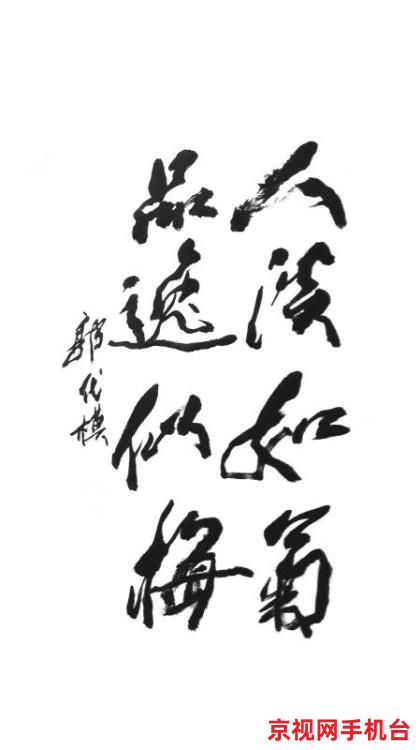 人淡如菊
品逸似梅
郭代模
京视网手机台